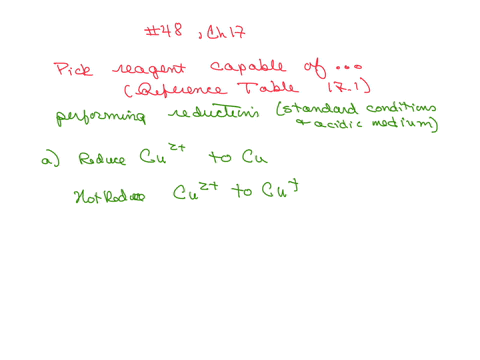 #48, Ch17
Pick reagent capable of ...
(Reference Table 17.1)
performing reductions (standard conditions
& acidic medium)
a) Reduce Cu²⁺ to Cu
Not Reduce Cu²⁺ to Cu⁺